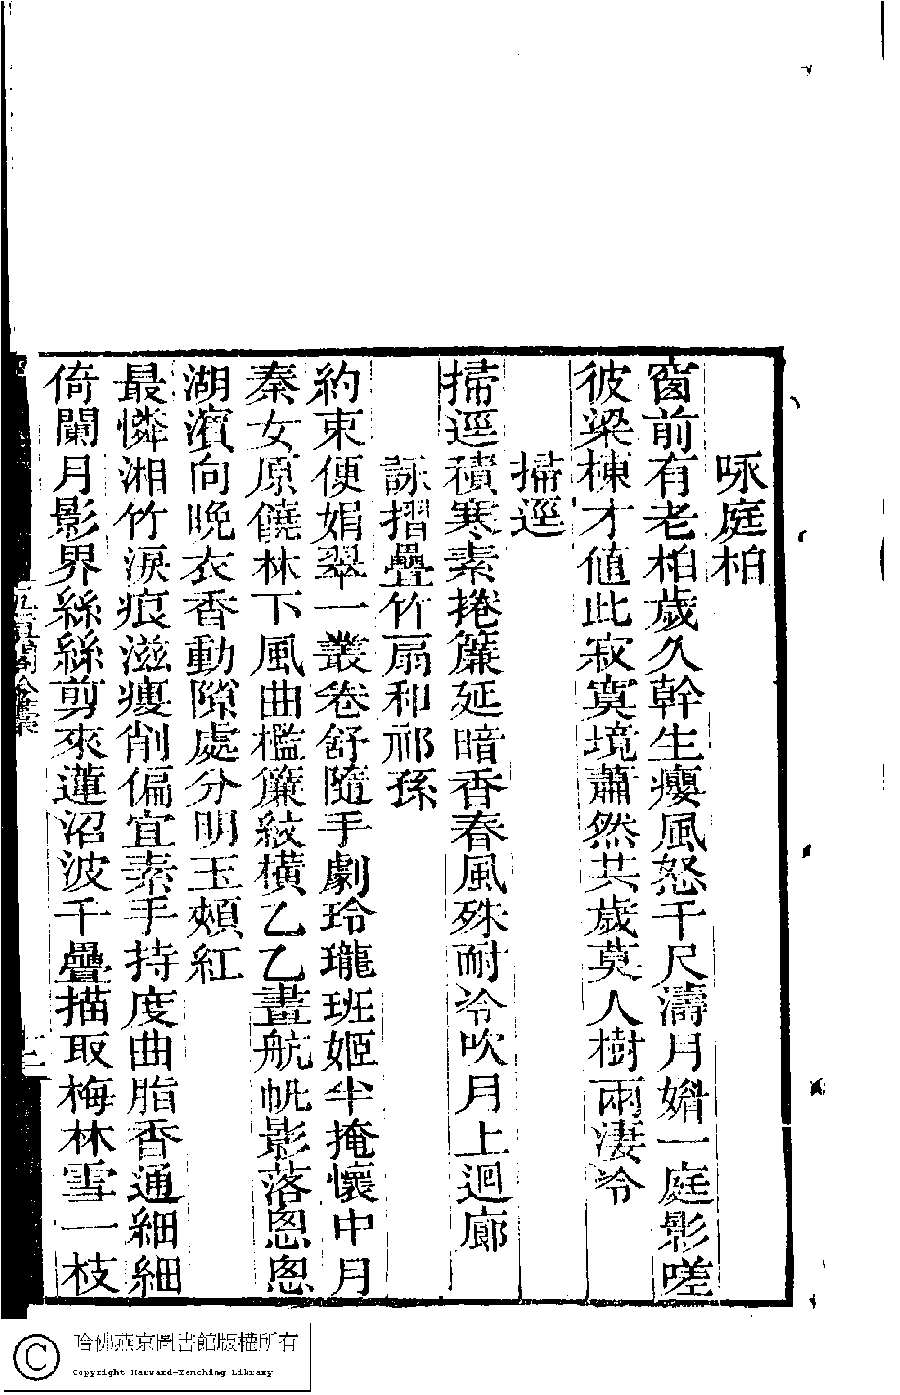 咏庭柏
窗前有老柏歲久幹生癭風怒千尺濤月娟一庭影嗟
彼梁棟才值此寂寞境蕭然共歲莫人樹兩凄冷
掃逕
掃逕積寒素捲簾延暗香春風殊耐冷吹月上迴廊
詠摺疊竹扇和祁孫
約束便娟翠一叢卷舒隨手劇玲瓏班姬半掩懷中月
秦女原饒林下風曲檻簾紋橫乙乙畫航帆影落悤悤
湖濱向晚衣香動隙處分明玉頰紅
最憐湘竹淚痕滋瘦削偏宜素手持度曲脂香通細細
倚闌月影界絲絲剪來蓮沼波千疊描取梅林雪一枝
哈佛燕京圖書館版權所有
Copyright Harvard-Yenching Library